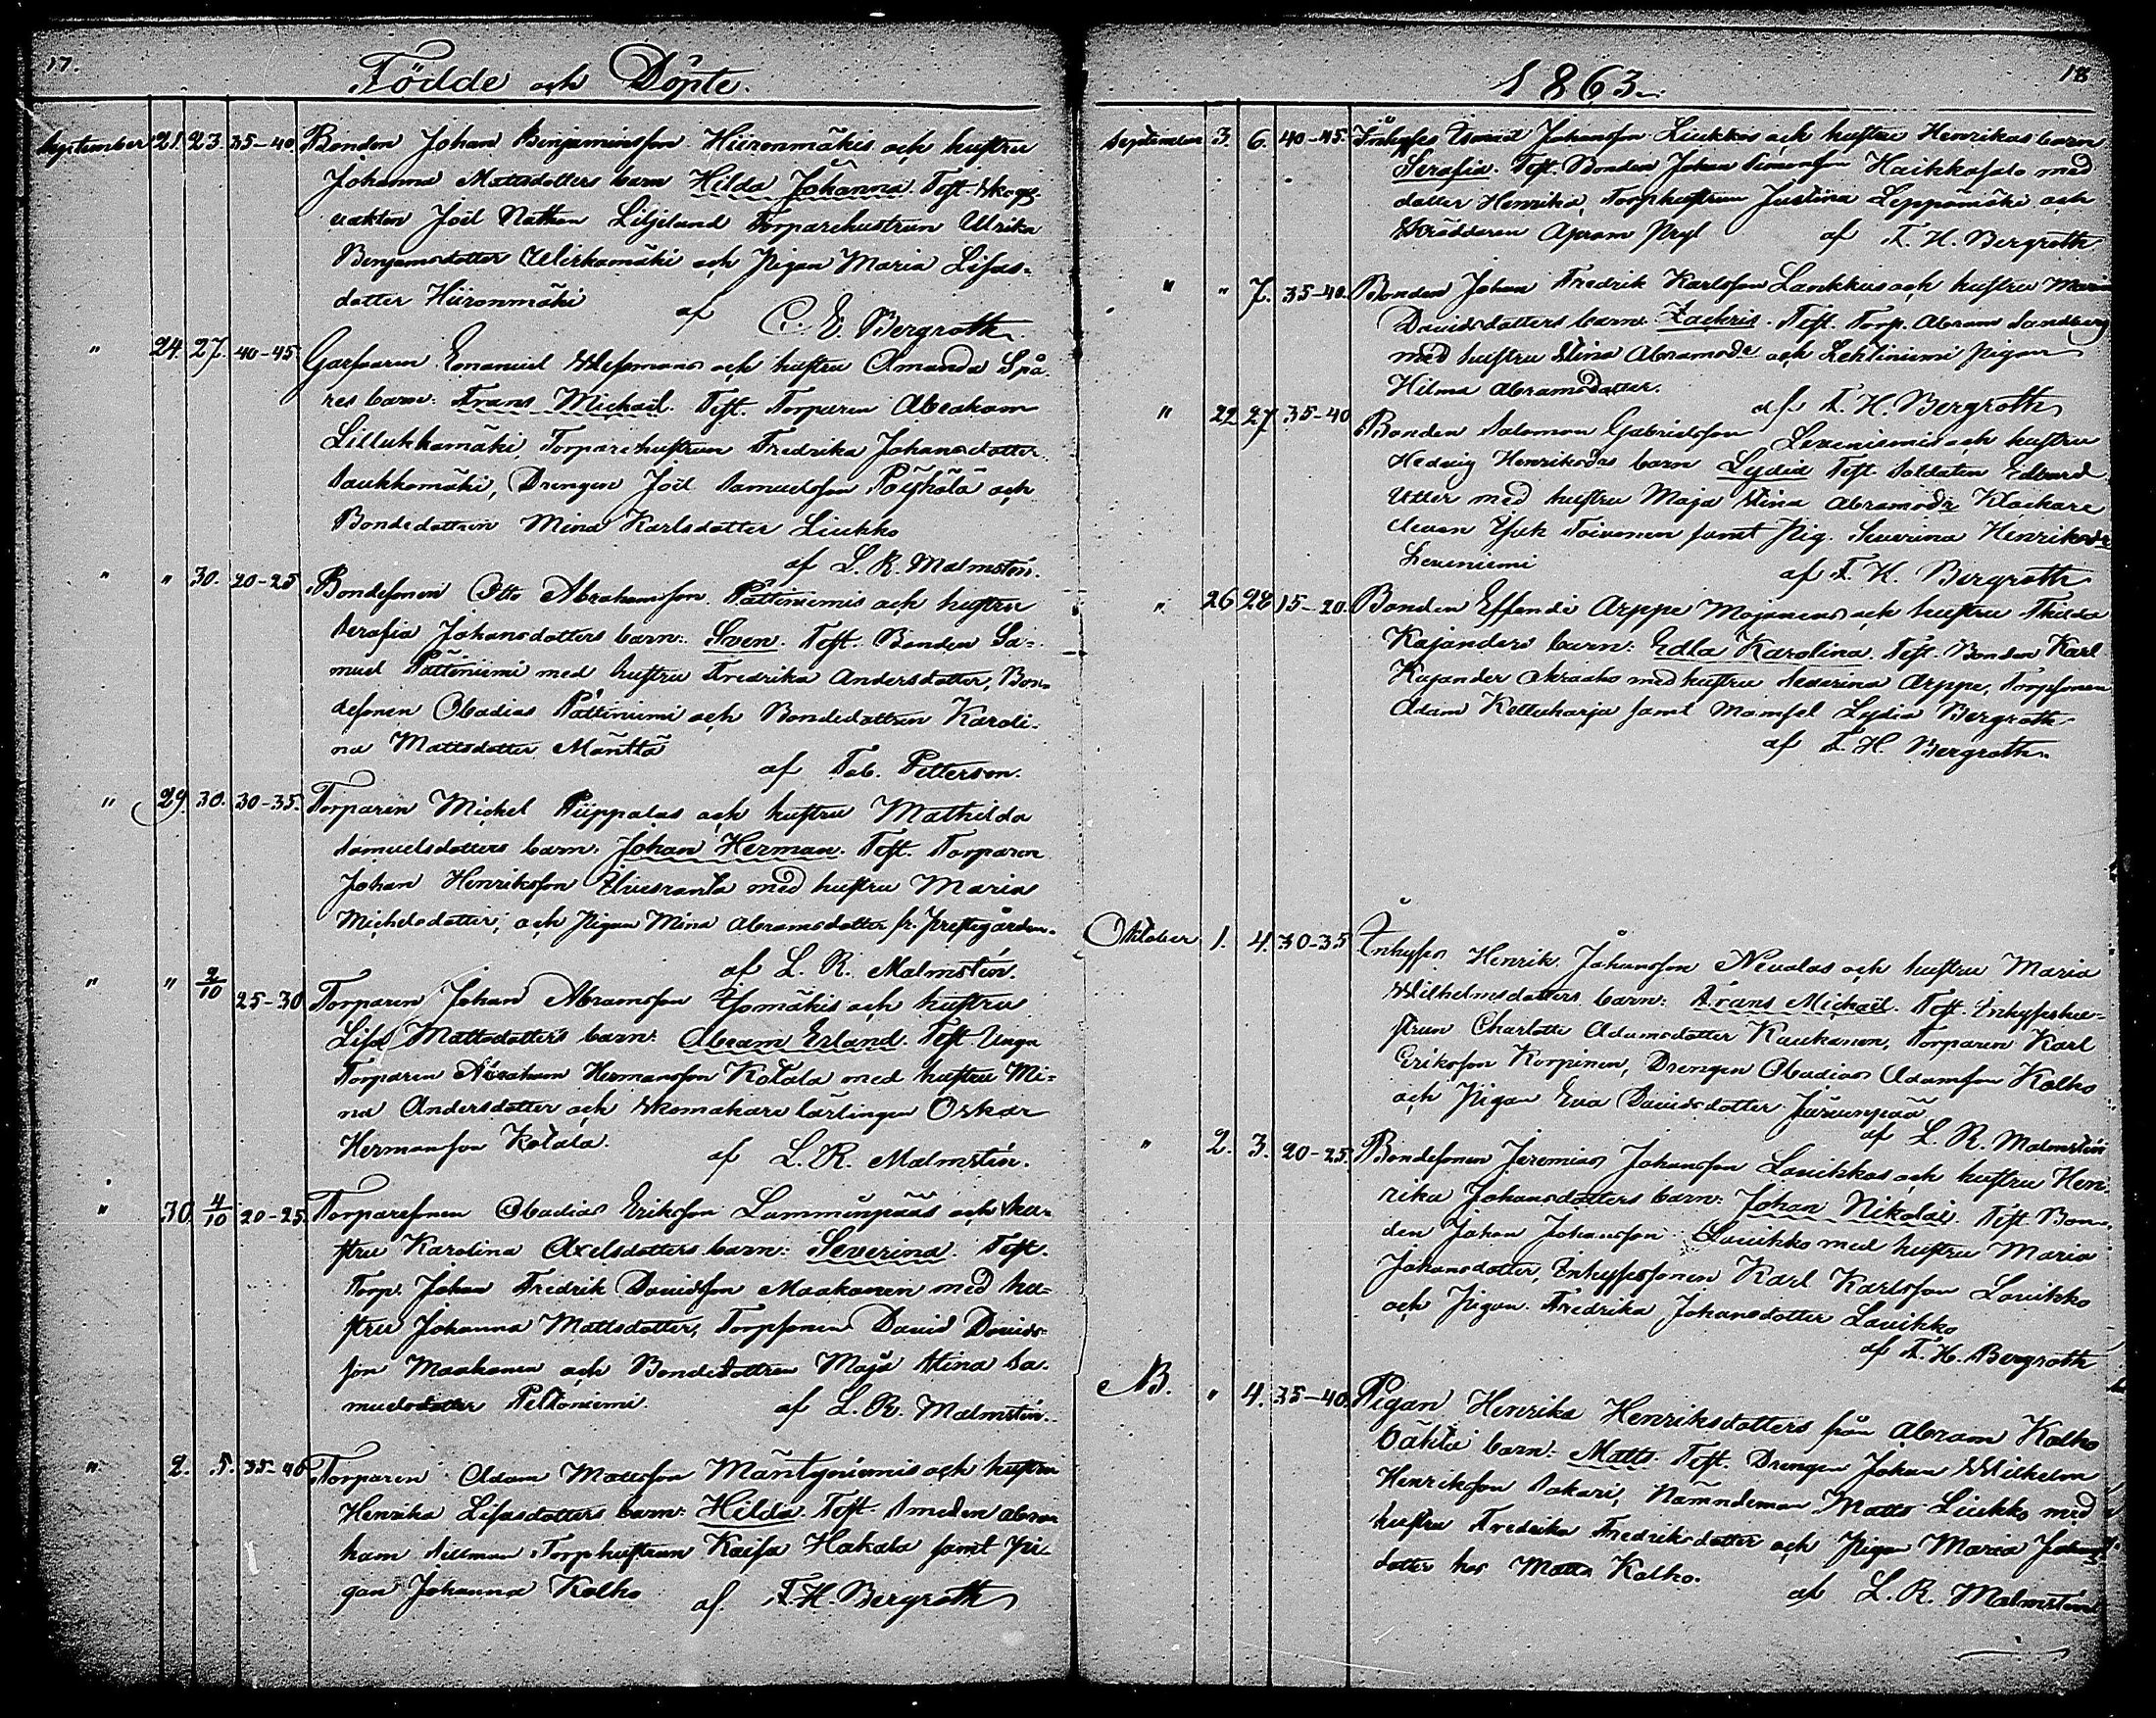 17.
Födde och Döpte.
September 21. 23. 35-40 Bonden Johan Benjaminsson Hiironmäkis och hustru
Johanna Mattsdotters barn Hilda Johanna. Test. Skogs-
vaktar Joel Nathan Liljelund Torparehustrun Ulrika
Benjamsdotter Wirkamäki och Pigan Maria Lisas-
dotter Hiironmäki af C. E. Bergroth.
" 24. 27. 40-45 Garfvaren Emanuel och hustru Amanda Spå-
res barn: Frans Michail. Test. Torparen Abraham
Lillukkamäki, Torparehustrun Fredrika Johansdotter
Saukkomäki, Drengen Joel Samuelsson Pöyhölä och
Bondedottren Mina Karlsdotter Liukko
af L. R. Malmstén.
" " 30. 20-25 Bondesonen Otto Abrahamsson Pättiniemis och hustru
Serafia Johansdotters barn: Sven. Test. Bonden Sa-
muel Pättiniemi med hustru Fredrika Andersdotter, Bon-
desonen Obadias Pättiniemi och Bondedottren Karoli-
na Mattsdotter Mänttä
af Tob. Petterson.
" 29. 30. 30-35. Torparen Mickel Piippolas och hustru Mathilda
Samuelsdotters barn: Johan Herman. Test. Torparen
Johan Henriksson med hustru Maria
Michelsdotter, och Pigan Mina Abramsdotter fr. prestgården.
af L. R. Malmstén.
" " 2/10 25-30 Torparen Johan Abramsson Isomäkis och hustru
Lisa Mattsdotters barn: Abram Erland. Test. Unga
Torparen Abraham Hermansson Kotala med hustru Mi-
na Andersdotter och Skomakare lärlingen Oskar
Hermansson Kotala. af L. R. Malmstén.
" 30. 4/10 20-25. Torparesonen Obadias Eriksson Lamminpääs och hu-
stru Karolina Axelsdotters barn: Severina. Test.
Torp. Johan Fredrik Davidsson Maakanen med hu-
stru Johanna Mattsdotter, Torpsonen David Davids-
son Maakanen och Bondedottren Maja Stina Sa-
muelsdotter Peltoniemi. af L. R. Malmstén.
" 2. 5. 35-40 Torparen Adam Mattsson Mäntyniemis och hustru
Henrika Lisasdotters barn: Hilda. Test. Smeden Abra-
ham Tillman Torphustrun Kaisa Hakala samt Pi-
gan Johanna Kalho af F. H. Bergroth
1863.
18
September 3. 6. 40-45. Inhyses Johansson Liukkos och hustru Henrikas barn
Serafia. Test. Bonden Johan Simonsson Haikkasalo med
dotter Henrika, Torphustrun Justina Leppämäki och
Skräddaren Apram Pryl af F. H. Bergroth
" " 7. 35-40. Bonden Johan Fredrik Karlsson Laukkus och hustru Maria
Davidsdotters barn: Zackris. Test. Torp. Abram Sandberg
med hustru Stina Abramsdr och Lehtiniemi Pigan
Hilma Abramsdotter. af F. H. Bergroth
" 22 27 35-40 Bonden Salomon Gabrielsson Leveniemis och hustru
Hedvig Henriksdrs barn Lydia Test. Soldaten Edvard
Utter med hustru Maja Stina Abramsdr Klockare
eleven Isak Toivonen samt Pig. Severina Henriksdr
Leveniemi af F. H. Bergroth
" 26 28 15-20. Bonden Effendi Arppe Majanens och hustru Thilda
Kajanders barn: Edla Karolina. Test. Bonden Karl
Kajander med hustru Severina Arppe, Torpsonen
Adam Kellukarja samt Mamsel Lydia Bergroth
af F. H. Bergroth.
Oktober 1. 4. 30-35 Inhyses Henrik Johansson Nevalas och hustru Maria
Wilhelmsdotters barn: Frans Michail. Test. Inhyseshu-
strun Charlotta Adamsdotter Kaukanen, Torparen Karl
Eriksson Korpinen, Drengen Obadias Adamsson Kalho
och Pigan Eva Davidsdotter Jurvanpää
af L. R. Malmstén
" 2. 3. 20-25. Bondesonen Jeremias Johansson Lauikkos och hustru Hen-
rika Johansdotters barn: Johan Nikolai. Test. Bon-
den Johan Johansson Lauikko med hustru Maria
Johansdotter, Inhysessonen Karl Karlsson Lauikko
och Pigan Fredrika Johansdotter Lauikko
af F. H. Bergroth
NB. " 4. 35-40. Pigan Henrika Henriksdotters från Abram Kalho
oäkta barn: Matts. Test. Drengen Johan Wilhelm
Henriksson Sakari, Nämndeman Matts Liukko med
hustru Fredrika Fredriksdotter och Pigan Maria Johans-
dotter hos Matts Kalho.
af L. R. Malmstén